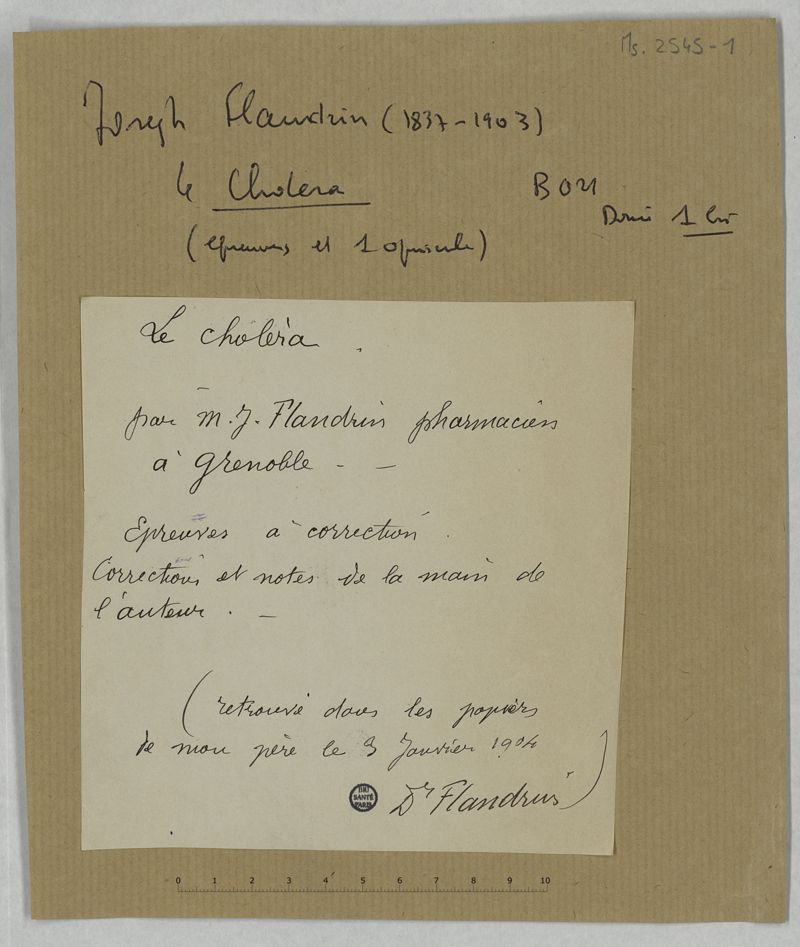 Ms. 2545-1
Joseph Flandrin (1837-1903)
le Choléra
(épreuves et 1 opuscule)
B 021
1
Le choléra.
par M. J. Flandrin pharmacien
à Grenoble - -
Epreuves à correction.
Corrections et notes de la main de
l'auteur. -
(retrouvé dans les papiers
de mon père le 3 Janvier 1904
Dr Flandrin)
BIU
SANTÉ
PARIS
0 1 2 3 4 5 6 7 8 9 10